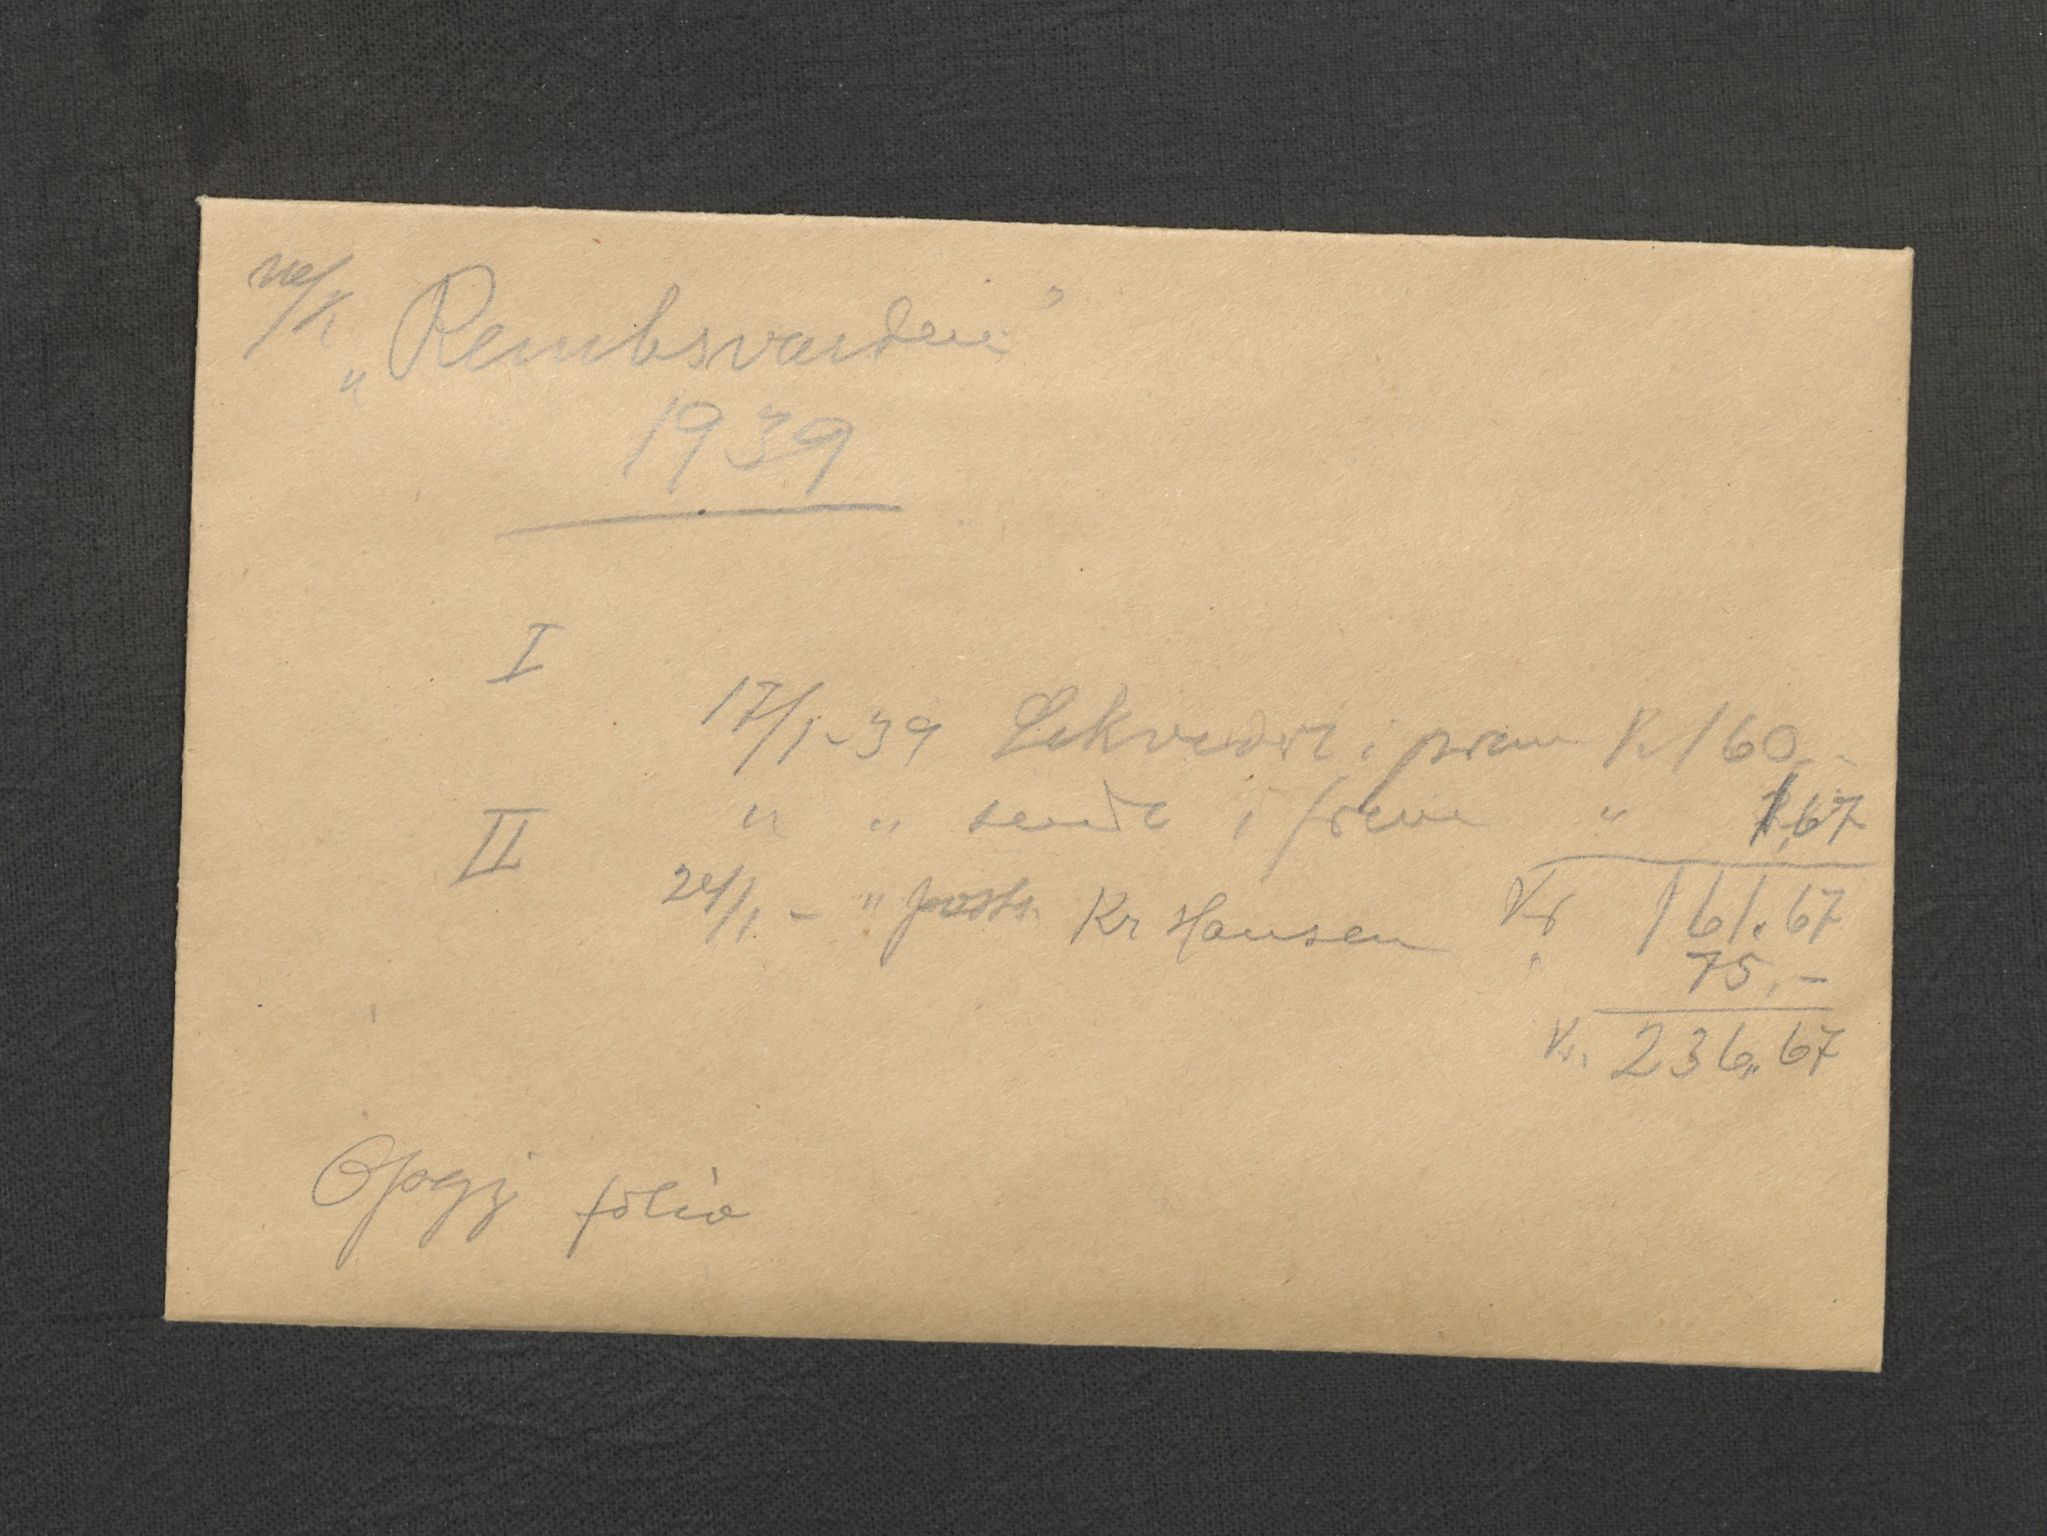 m/s
„Rembsvarden”
1939
I
17/1-39 i prem Kr 160,-
" " sendt i frem " 1,67
Kr 161.67
II
24/1 - " post Kr Hansen " 75,-
Kr. 236,67
Opgj folio